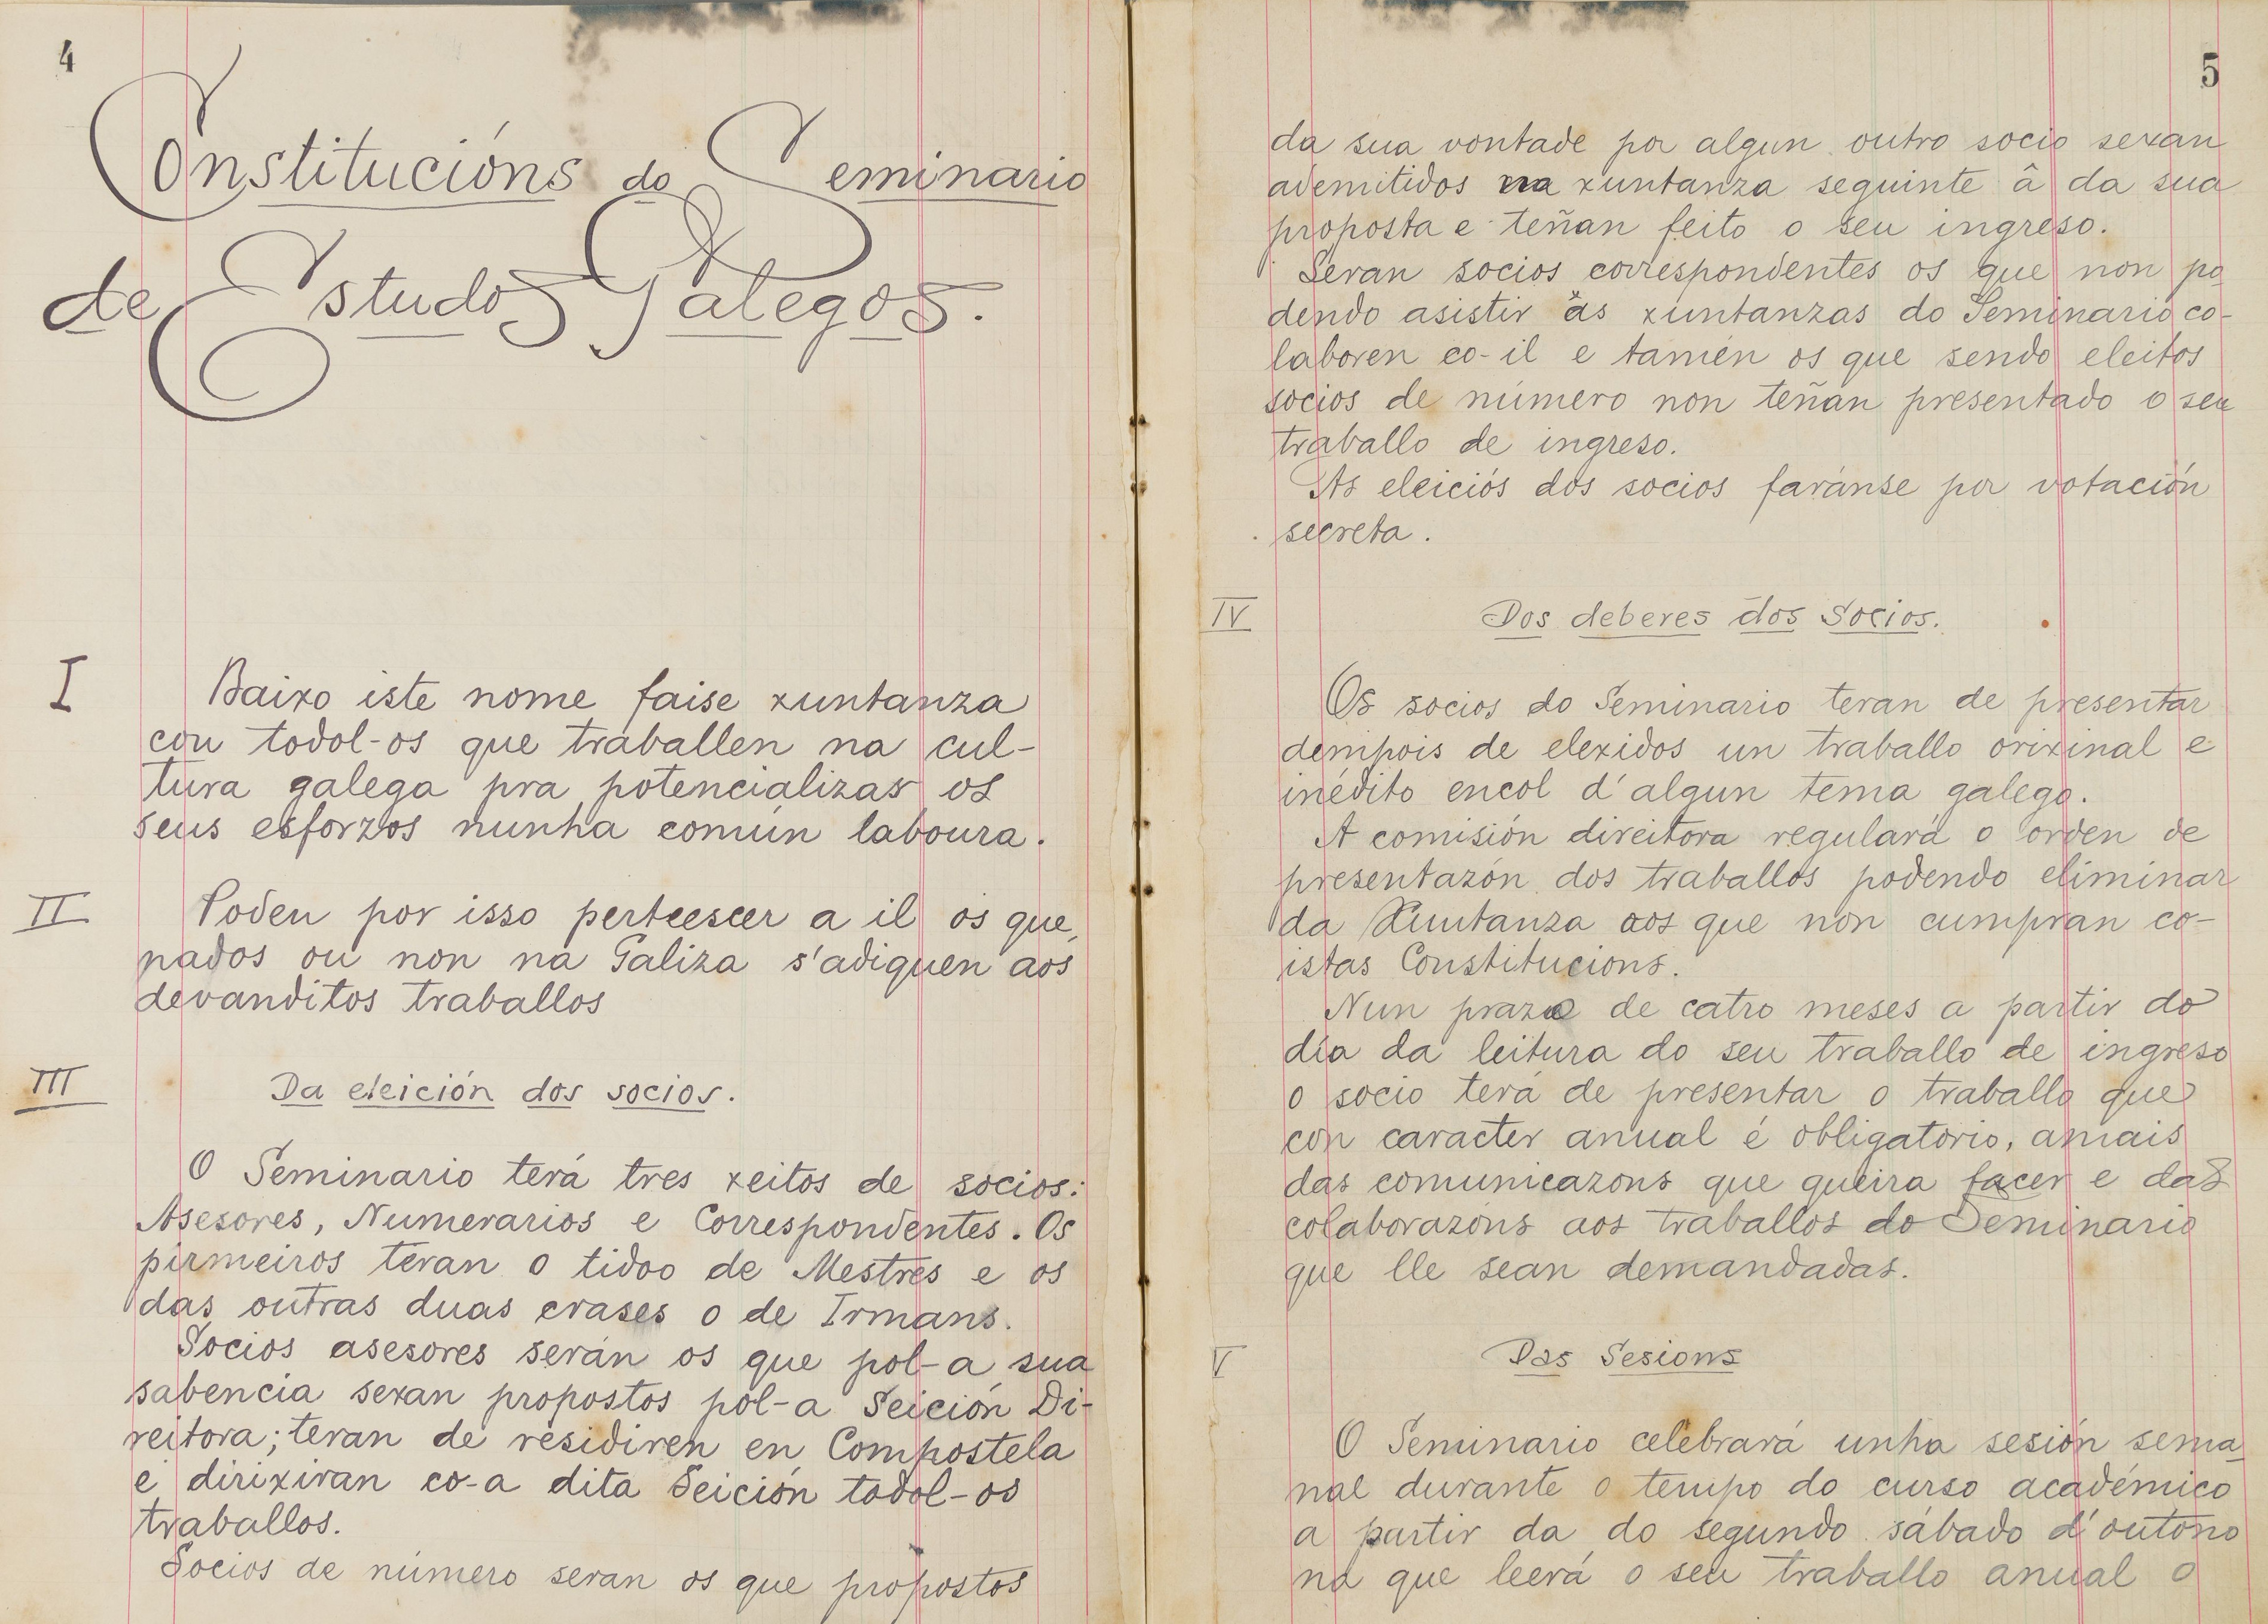 4
Constitucións do Seminario
de Estudos Galegos.
I
Baixo iste nome faise xuntanza
con todol-os que traballen na cul-
tura galega pra potencializar os
seus esforzos nunha común laboura.
II
Poden por isso perteescer a il os que,
nados ou non na Galiza s'adiquen aos
devanditos traballos
III
Da eleición dos socios.
O Seminario terá tres xeitos de socios:
Asesores, Numerarios e Correspondentes. Os
pirmeiros terán o tidoo de Mestres e os
das outras duas crases o de Irmans.
Socios asesores serán os que pol-a sua
sabencia sexan propostos pol-a Seición Di-
reitora; teran de residiren en Compostela
e dirixiran co-a dita Seición todol-os
traballos.
Socios de número seran os que propostos
5
da sua vontade por algun outro socio sexan
ademitidos na xuntanza seguinte â da sua
proposta e teñan feito o seu ingreso.
Seran socios correspondentes os que non po
dendo asistir âs xuntanzas do Seminario co-
laboren co-il e tamén os que sendo eleitos
socios de número non teñan presentado o seu
traballo de ingreso.
As eleiciós dos socios faránse por votación
secreta.
IV
Dos deberes dos Socios.
Os socios do Seminario teran de presentar
dempois de elexidos un traballo orixinal e
inédito encol d'algun tema galego.
A comisión direitora regulará o orden de
presentazón dos traballos podendo eliminar
da Xuntanza aos que non cumpran co-
istas Constitucions.
Nun prazo de catro meses a partir do
día da leitura do seu traballo de ingreso
o socio terá de presentar o traballo que
con caracter anual é obligatorio, amais
das comunicazons que queira facer e das
colaborazóns aos traballos do Seminario
que lle sean demandadas.
V
Das Sesions
O Seminario celebrará unha sesión sema
nal durante o tempo do curso académico
a partir da do segundo sábado d'outono
na que leerá o seu traballo anual o